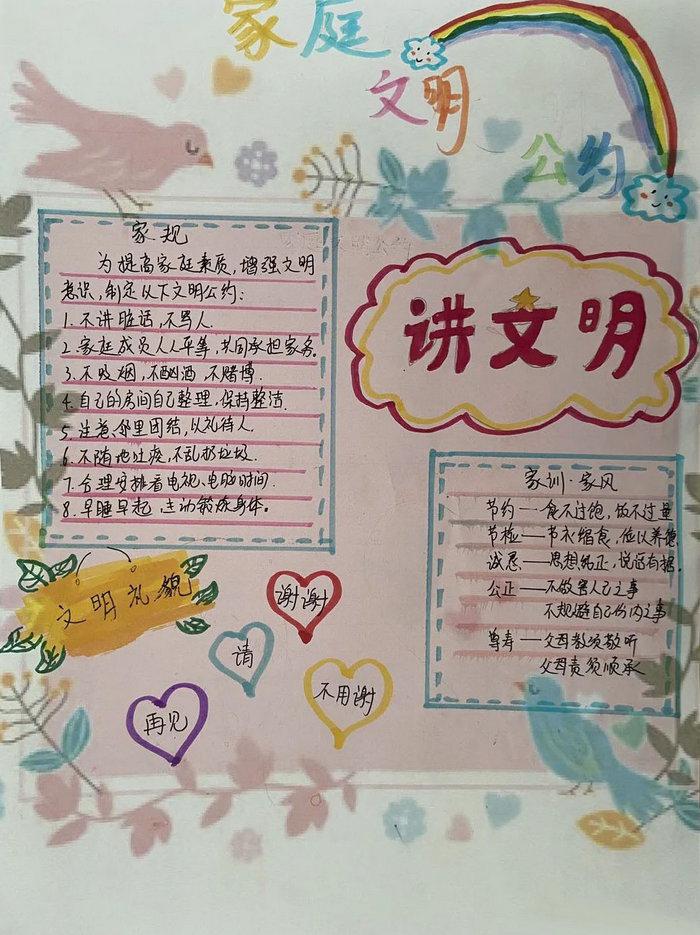 家庭
文明
公约
家规
为提高家庭素质,增强文明
意识,制定以下文明公约:
1.不讲脏话,不骂人.
2.家庭成员人人平等,共同承担家务。
3.不吸烟,不酗酒,不赌博.
4.自己的房间自己整理.保持整洁.
5.注意邻里团结,以礼待人.
6.不随地吐痰,不乱扔垃圾.
7.合理安排看电视、电脑时间.
8.早睡早起,主动锻炼身体。
讲文明
家训·家风
节约——食不过饱,饭不过量
节检——节衣缩食,俭以养德.
诚恳——思想纯正,说话有据.
公正——不做害人己之事
不规避自己份内之事
尊寿——父母教须敬听
父母责须顺承
文明礼貌
谢谢
请
不用谢
再见